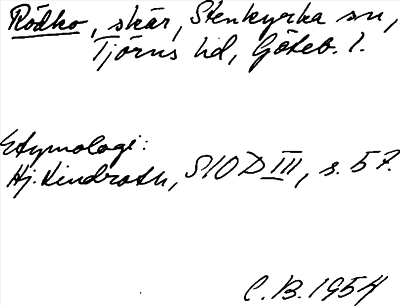 Rödko, skär, Stenkyrka sn,
Tjörns hd, Göteb. l.
Etymologi:
Hj. Lindroth, SIOD III, s. 57.
C.B. 1954